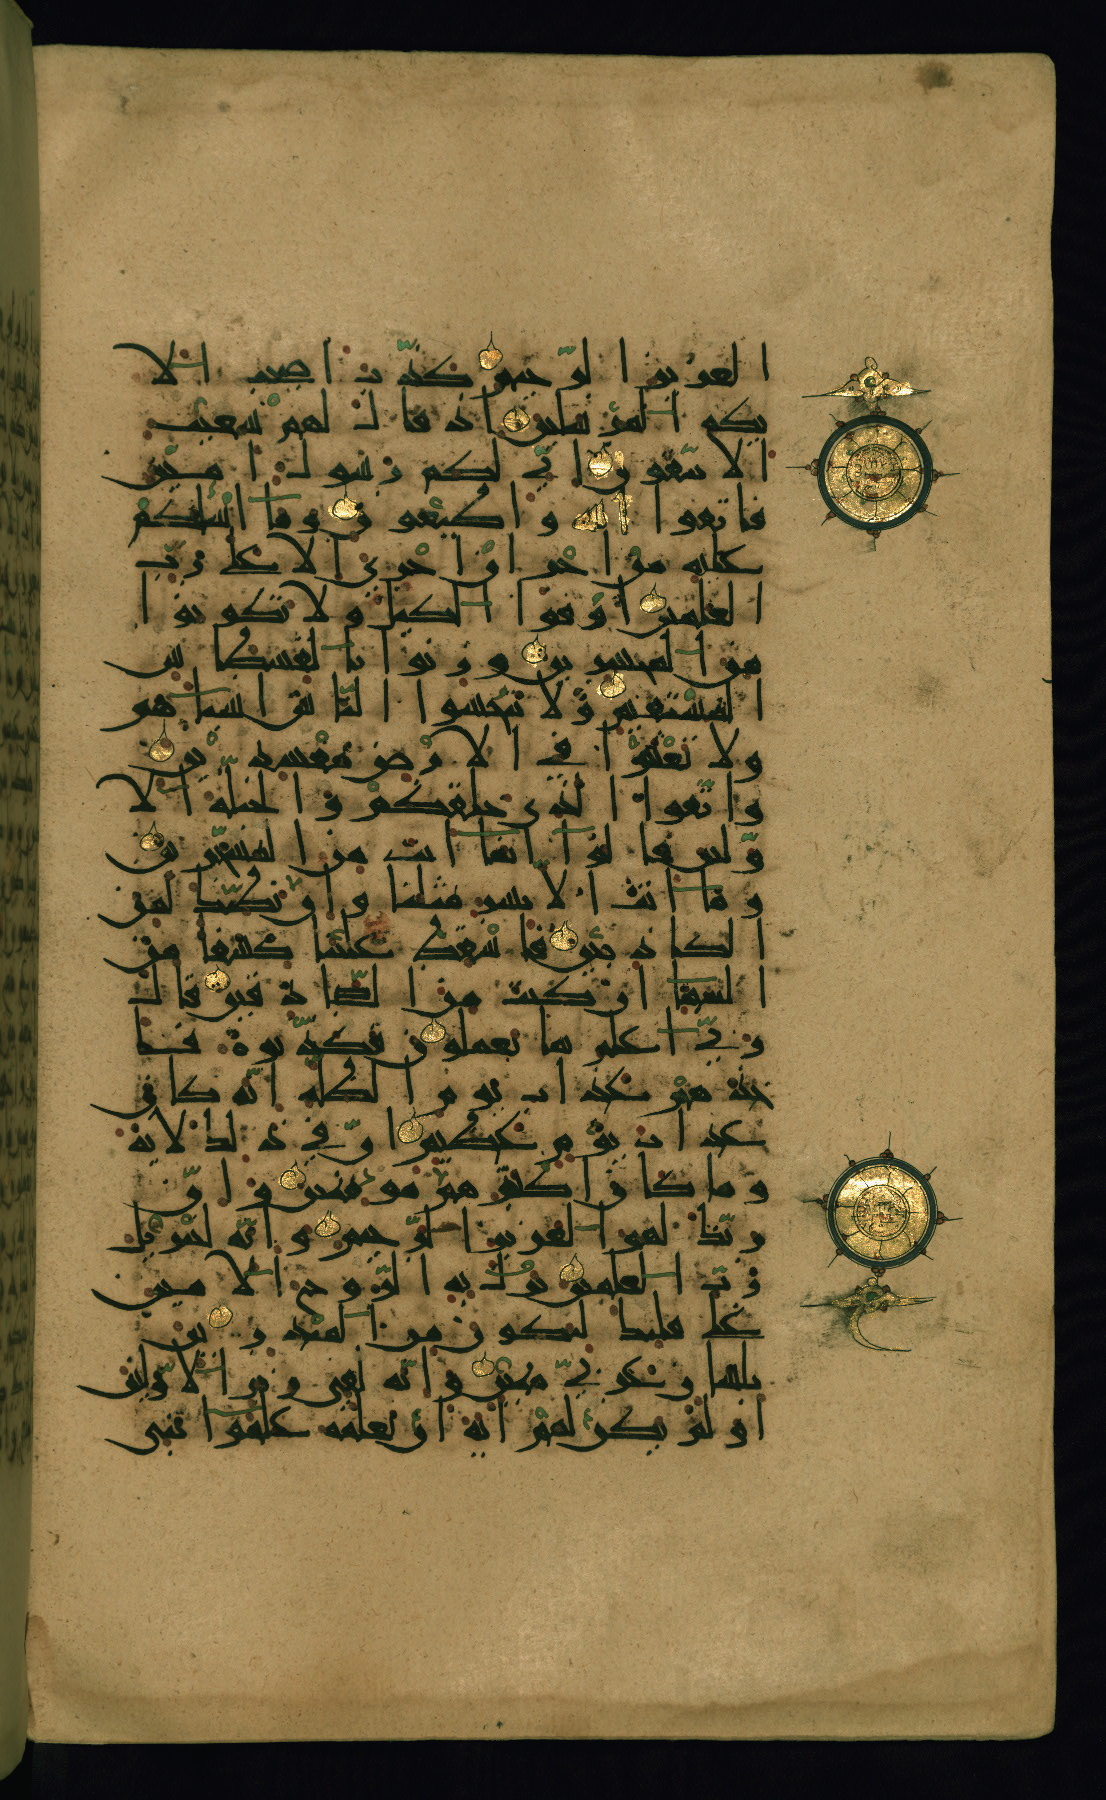 العزيز الرحيم كذب اصحب الا
يكة المرسلين اذ قال لهم شعيب
الا تتقون اني لكم رسول امين
فاتقوا الله واطيعون وما اسلكم
عليه من اجر ان اجري الا على رب
العلمين اوفوا الكيل ولا تكونوا
من المخسرين وزنوا بالقسطاس
المستقيم ولا تبخسوا الناس اشياهم
ولا تعثوا في الارض مفسدين
واتقوا الذي خلقكم والجبلة الا
ولين قالوا انما انت من المسحرين
وما انت الا بشر مثلنا وان نظنك لمن
الكذبين فاسقط علينا كسفا من
السما ان كنت من الصدقين قال
ربي اعلم بما تعملون فكذبوه فا
خذهم عذاب يوم الظلة انه كان
عذاب يوم عظيم ان في ذلك لاية
وما كان اكثرهم مومنين وان
ربك لهو العزيز الرحيم وانه لتنزيل
رب العلمين نزل به الروح الامين
على قلبك لتكون من المنذرين
بلسان عربي مبين وانه لفي زبر الاولين
اولم يكن لهم اية ان يعلمه علموا بني